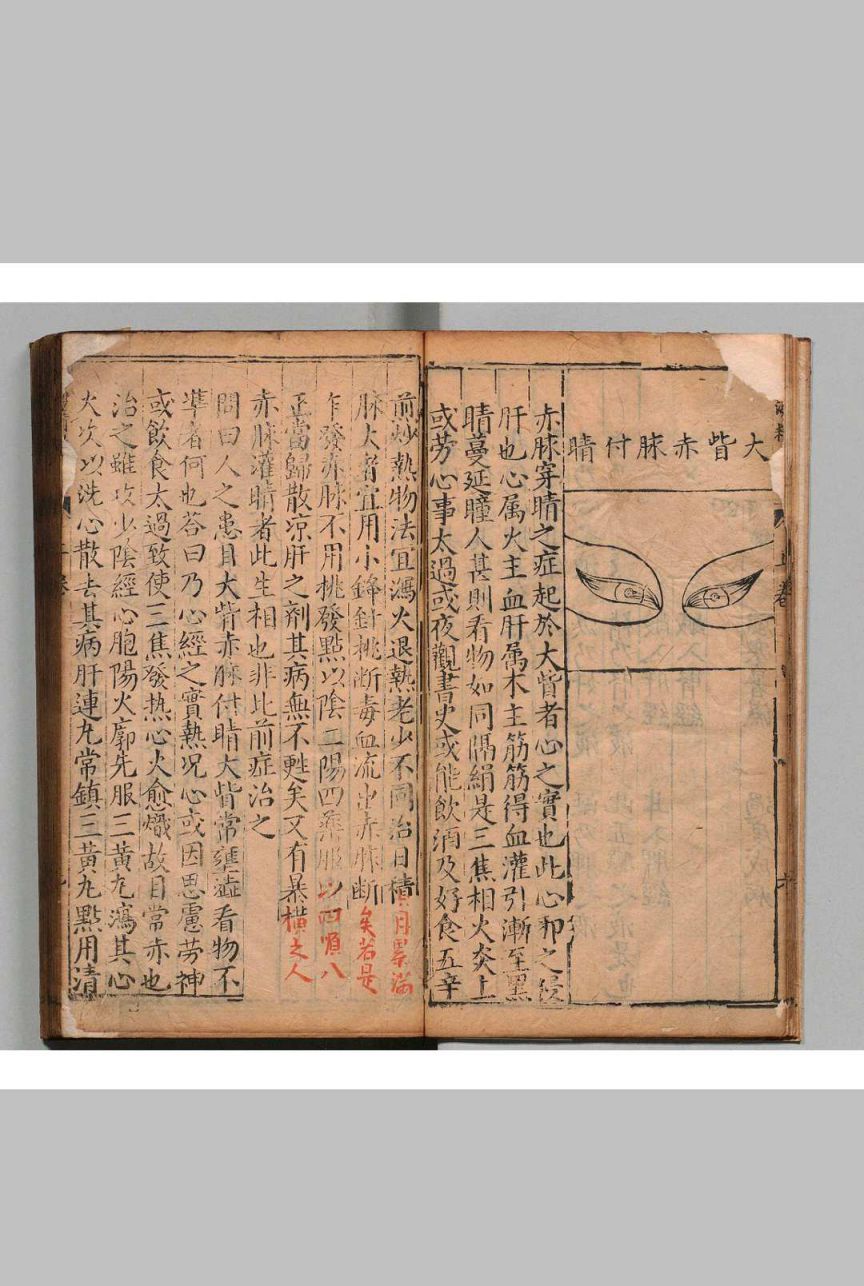 大眥赤脉付睛
赤脉穿睛之症起於大眥者心之實也此心邪之侵
肝也心属火主血肝属木主筋筋得血灌引漸至黑
睛蔓延瞳人甚則看物如同隔絹是三焦相火炎上
或劳心事太過或夜觀書史或能飲酒及好食五辛
煎炒熱物法宜瀉火退熱老少不同治日積月累滿
脉大者宜用小鋒針挑断毒血流出赤脉断矣若是
乍發赤脉不用挑發點以陰二陽四藥服以四順八
正當歸散凉肝之剤其病無不甦矣又有暴横之人
赤脉灌睛者此生相也非此前症治之
問曰人之患目大眥赤脉付睛大眥常壅澁看物不
準者何也荅曰乃心經之實熱况心或因思慮劳神
或飲食太過致使三焦發热心火愈熾故目常赤也
治之雖攻少陰經心胞陽火廓先服三黄丸瀉其心
火次以洗心散去其病肝連丸常鎮三黄丸點用清
上卷